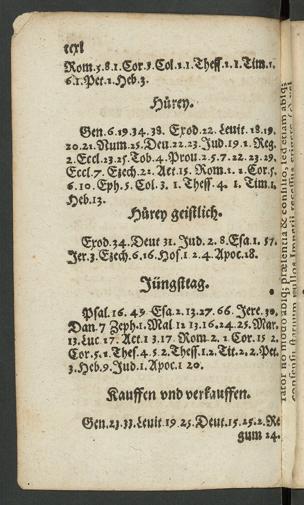 Rom.5.8.1.Cor.3.Col.1.1.Thess.1.1.Tim.1.
6.1.Pet.1.Heb.3.
Hürey.
Gen.6.19.34.38. Exod.22. Leuit.18.19.
20.21.Num.25.Deu.22.23.Jud.19.1.Reg.
2.Eccl.23.25.Tob.4.Prou.2.5.7.22.23.29.
Eccl.7. Ezech.21. Act.15. Rom.1. 1. Cor.5.
6.10. Eph.5. Col.3. 1. Thess. 4. 1. Tim.1.
Heb.13.
Hürey geistlich.
Exod.34. Deut 31. Jud. 2. 8. Esa.1. 57.
Jer.3.Ezech.6.16.Hos.1 2.4.Apoc.18.
Jüngsttag.
Psal.16. 49. Esa 2.13.27.66. Jere.30.
Dan.7 Zeph.1.Mal 12 13.16.24.25.Mar.
13.Luc 17. Act.1 3.17. Rom.2. 1 Cor.15 2.
Cor.5.1.Thes.4.5 2.Thess.1.2.Tit.2.2.Pet.
3.Heb.9.Jud.1.Apoc.1 20.
Kauffen vnd verkauffen.
Gen.23.33.Leuit 19 25.Deut.15.25.2.Re
gum 24.